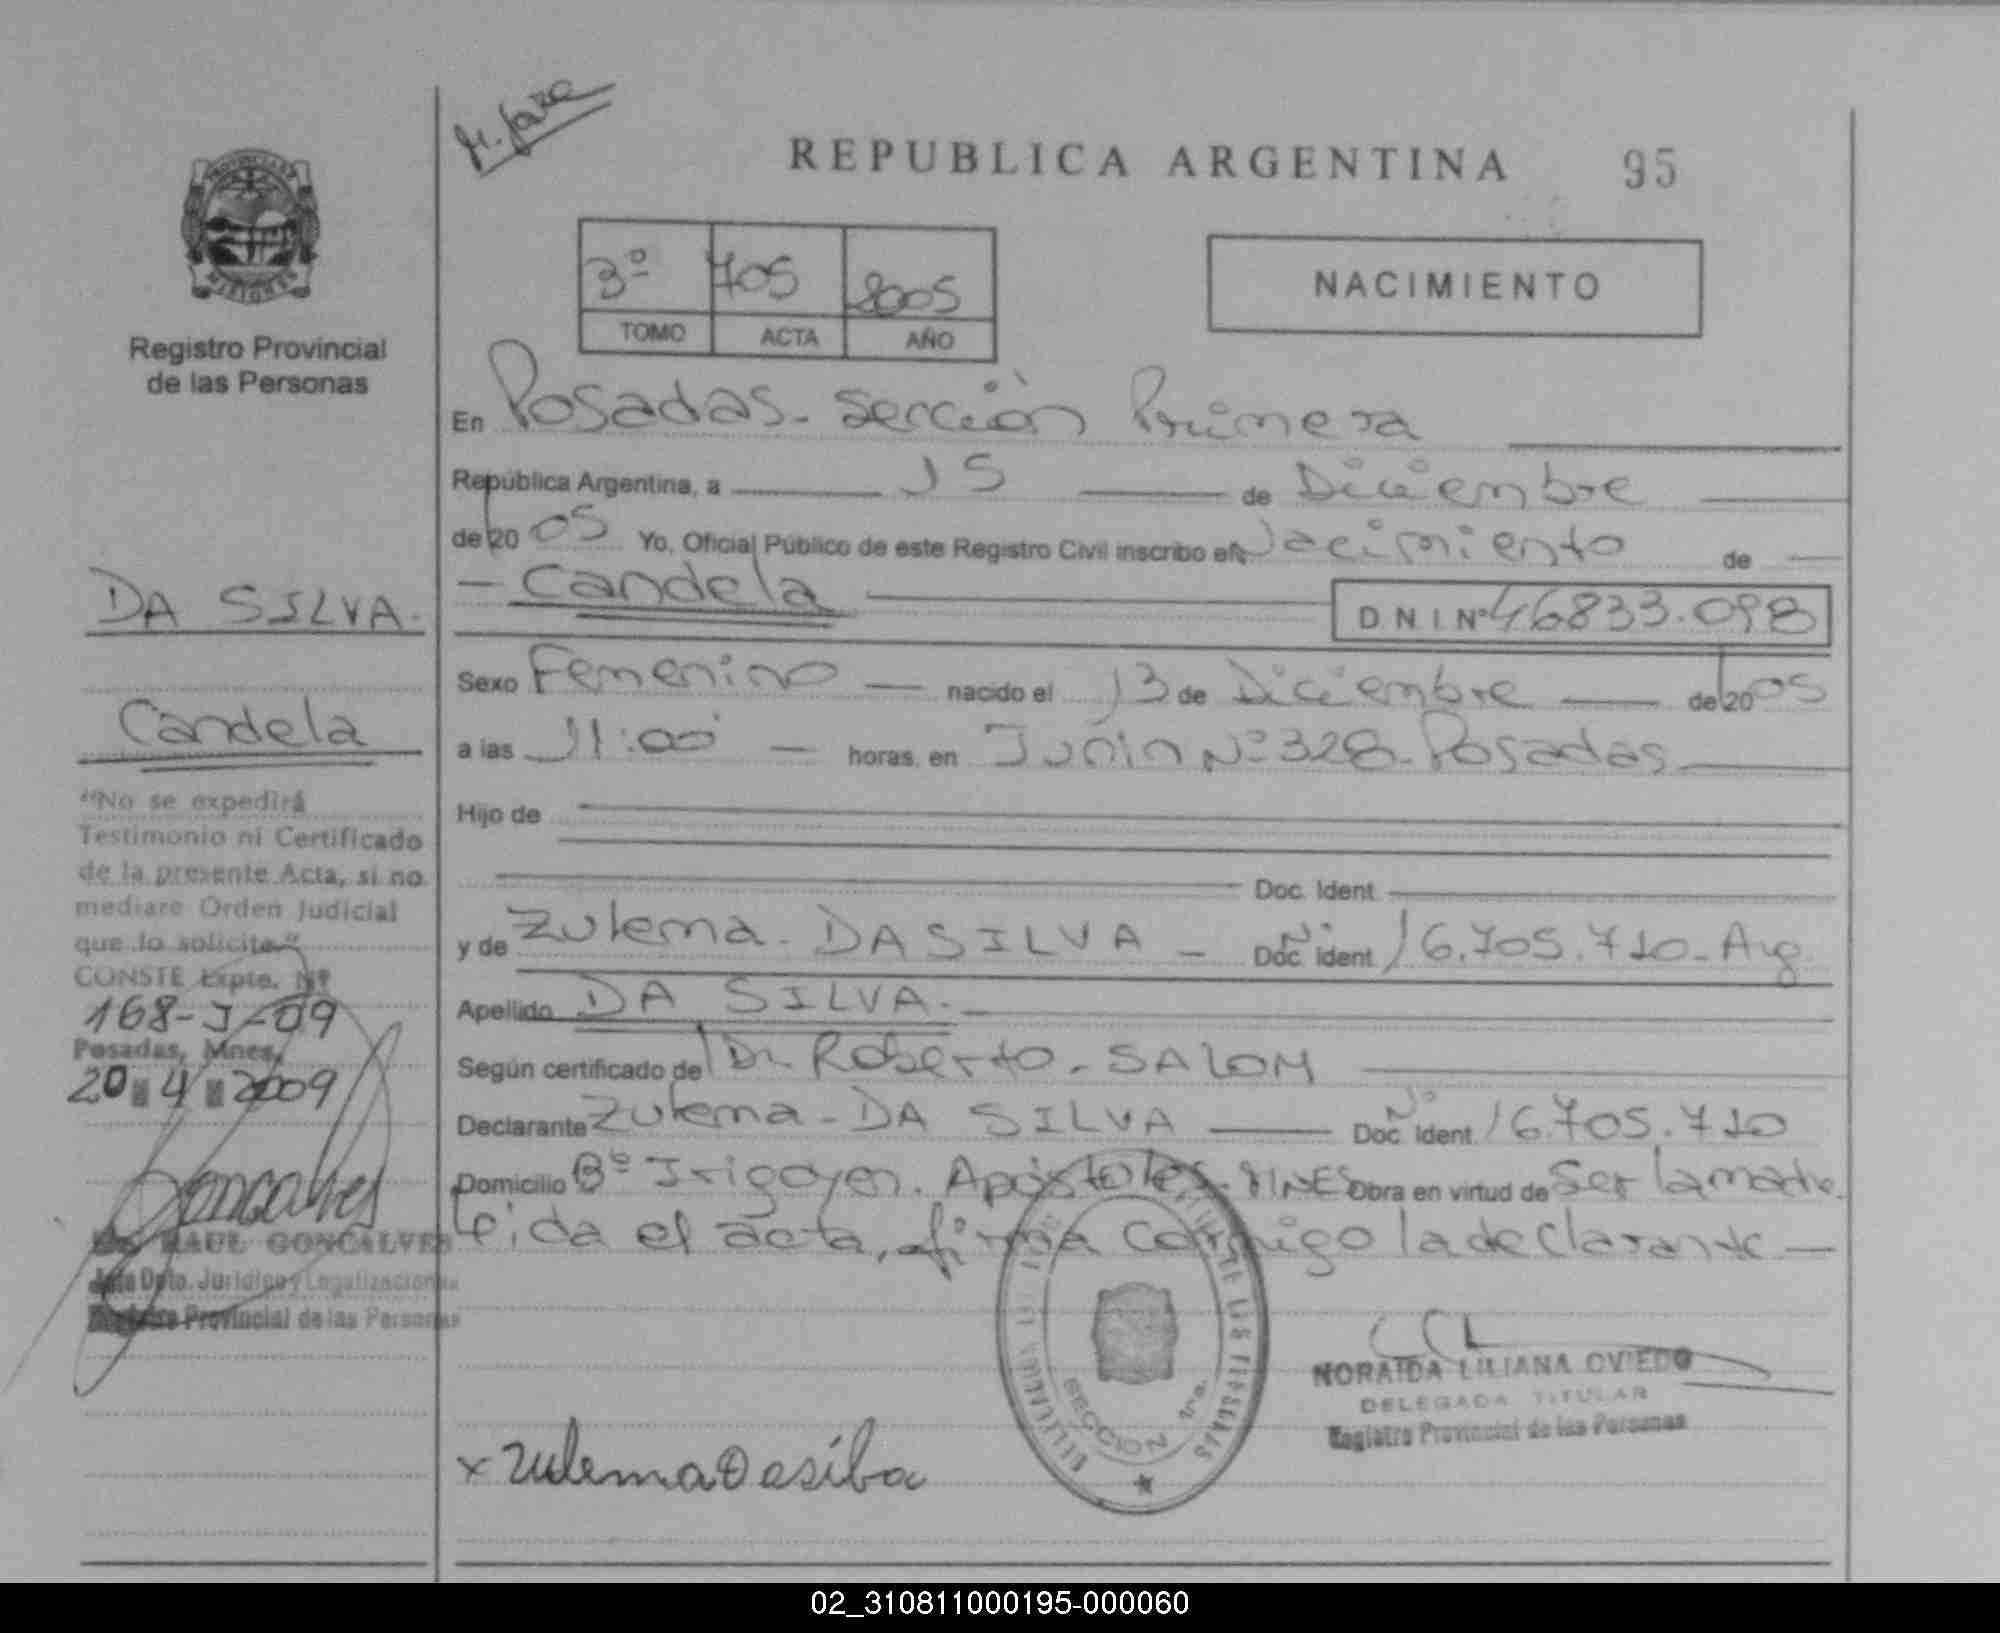 REPUBLICA ARGENTINA 95
PROVINCIA DE
MISIONES
Registro Provincial
de las Personas
3º 705 2005
TOMO ACTA AÑO
NACIMIENTO
En Posadas - Sección Primera
República Argentina, a 15 de Diciembre
de 2005 Yo, Oficial Público de este Registro Civil inscribo el Nacimiento de
Candela
D N I Nº 46833.098
Sexo Femenino nacido el 13 de Diciembre de 2005
a las 11:00 horas, en Junin Nº 328 - Posadas
Hijo de
Doc. Ident.
y de Zulema - DA SILVA - Doc. Ident. Nº 16.705.710 - Arg
Apellido DA SILVA.
Según certificado de Dr Roberto - SALOM
Declarante Zulema - DA SILVA Doc. Ident. Nº 16.705.710
Domicilio Bº Irigoyen. Apóstoles - MNES Obra en virtud de ser la madre
leida el acta, firma conmigo la declarante
SECCION 1ra.
NORAIDA LILIANA OVIEDO
DELEGADA TITULAR
Registro Provincial de las Personas
x Zulema Dasilba
DA SILVA.
Candela
"No se expedirá
Testimonio ni Certificado
de la presente Acta, si no
mediare Orden Judicial
que lo solicite"
CONSTE Expte. Nº
168-J-09
Posadas, Mnes,
20 4 2009
Goncalves
RAUL GONCALVES
Jefe Dpto. Jurídico y Legalizaciones
Registro Provincial de las Personas
02_310811000195-000060